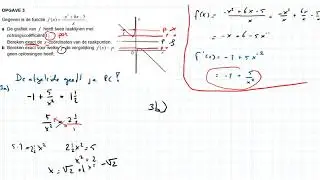 OPGAVE 3
Gegeven is de functie f(x) = (-x² + 6x - 5)/x.
a De grafiek van f heeft twee raaklijnen met
richtingscoëfficiënt 1½.
Bereken exact de x-coördinaten van de raakpunten.
b Bereken exact voor welke p de vergelijking f(x) = p
geen oplossingen heeft.
f(x) = (-x² + 6x - 5)/x = -x²/x + 6x/x - 5/x
= -x + 6 - 5x⁻¹
f'(x) = -1 + 5x⁻²
= -1 + 5/x²
3a) De afgeleide geeft je RC!
-1 + 5/x² = 1½
5/x² = 2½
5·1 = 2½x² 2½x² = 5
x² = 2
x = √2 of x = -√2
3b)